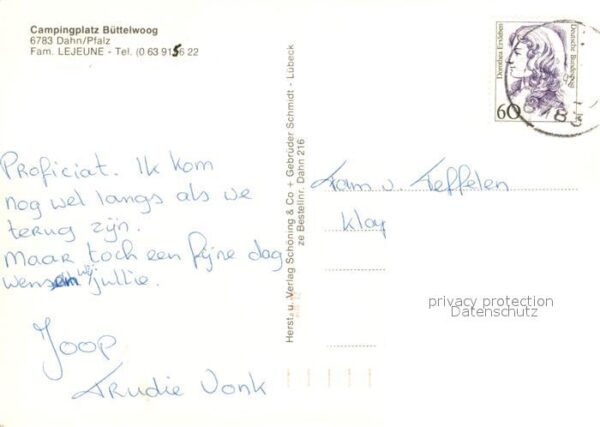 Campingplatz Büttelwoog
6783 Dahn/Pfalz
Fam. LEJEUNE - Tel. (0 63 91) 56 22
Proficiat. Ik kom
nog wel langs als we
terug zijn.
Maar toch een fijne dag
wensen wij jullie.
Joop
Trudie Vonk
Herst. u. Verlag Schöning & Co + Gebrüder Schmidt - Lübeck
ze Bestellnr. Dahn 216
Dorothea Erxleben
Deutsche Bundespost
60
Fam v. Teffelen
privacy protection
Datenschutz